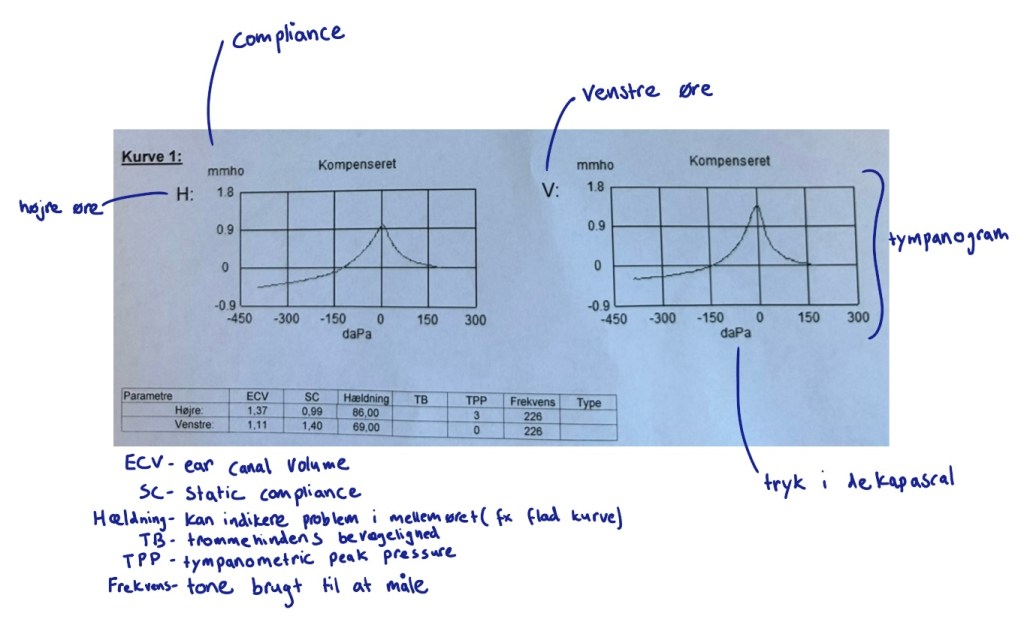 compliance
venstre øre
Kurve 1:
mmho
Kompenseret
H:
1.8
0.9
0
-0.9
-450 -300 -150 0 150 300
daPa
højre øre
mmho
Kompenseret
V:
1.8
0.9
0
-0.9
-450 -300 -150 0 150 300
daPa
tympanogram
Parametre ECV SC Hældning TB TPP Frekvens Type
Højre: 1,37 0,99 86,00 3 226
Venstre: 1,11 1,40 69,00 0 226
tryk i dekapascal
ECV- ear canal volume
SC- static compliance
Hældning- kan indikere problem i mellemøret( fx flad kurve)
TB- trommehindens bevægelighed
TPP - tympanometric peak pressure
Frekvens- tone brugt til at måle